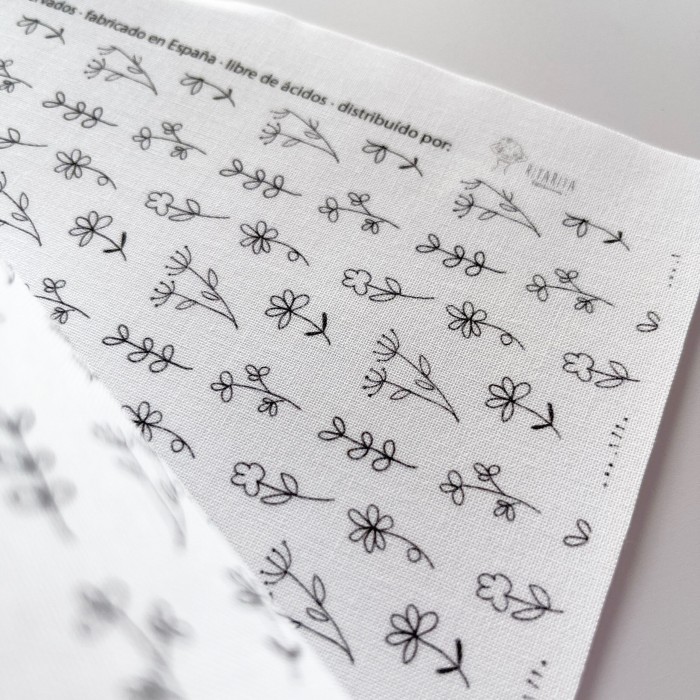 · fabricado en España · libre de ácidos · distribuído por:
RITARITA